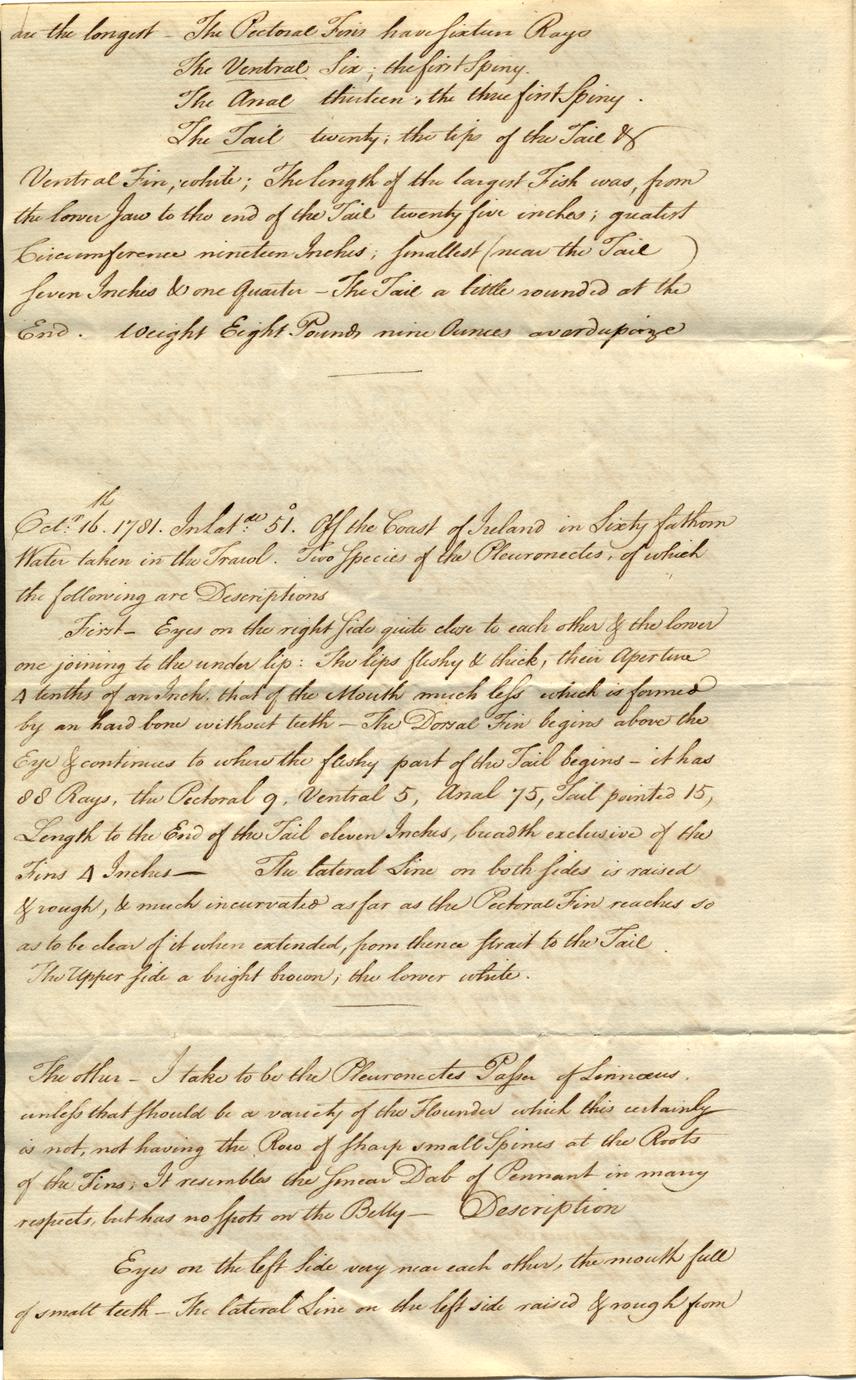 are the longest – The Pectoral Fins have sixteen Rays
The Ventral Six; the first Spiny.
The Anal thirteen, the three first Spiny.
The Tail twenty; the tips of the Tail &
Ventral Fin, white; The length of the largest Fish was, from
the lower Jaw to the end of the Tail twenty five inches; greatest
Circumference nineteen Inches; smallest (near the Tail)
seven Inches & one Quarter – The Tail a little rounded at the
End. Weight Eight Pounds nine Ounces averdupoize
Octr. 16th. 1781. In Latde. 51°. Off the Coast of Ireland in Sixty fathom
Water taken in the Trawl. Two Species of the Pleuronectes, of which
the following are Descriptions
First – Eyes on the right side quite close to each other & the lower
one joining to the under lip: The lips fleshy & thick, their Aperture
4 tenths of an Inch, that of the Mouth much less which is formed
by an hard bone without teeth – The Dorsal Fin begins above the
Eye & continues to where the fleshy part of the Tail begins – it has
88 Rays, the Pectoral 9, Ventral 5, Anal 75, Tail pointed 15,
Length to the End of the Tail eleven Inches, breadth exclusive of the
Fins 4 Inches – The lateral Line on both sides is raised
& rough, & much incurvated as far as the Pectoral Fin reaches so
as to be clear of it when extended, from thence strait to the Tail
The Upper side a bright brown; the lower white.
The other – I take to be the Pleuronectes Passer of Linnæus.
unless that should be a variety of the Flounder which this certainly
is not, not having the Row of sharp small Spines at the Roots
of the Fins; It resembles the Smear Dab of Pennant in many
respects, but has no spots on the Belly – Description
Eyes on the left side very near each other, the mouth full
of small teeth – The lateral Line on the left side raised & rough from